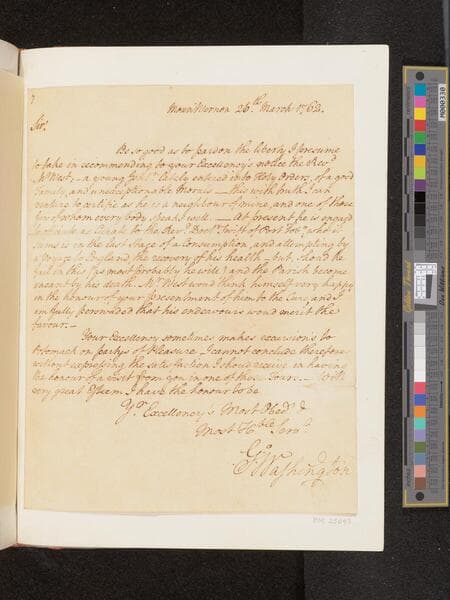 Mount Vernon 26.th March 1762.
Sir,
Be so good as to pardon the liberty I presume
to take in recommending to your Excellency's notice the Revd
Mr West, – a young Gentn lately entered into Holy Orders, of a good
Family, and unexceptionable Morals – this with truth I can
venture to certifie as he is a neighbour of mine, and one of those
few of whom every body speaks well. – At present he is engagd
to officiate as Curate to the Revd Doctr Swift of Port Tobo who it
seems is in the last stage of a Consumption, and attempting by
a Voyage to England the recovery of his health – but, should he
fail in this (as most probably he will) and the Parish become
vacant by his death, Mr West would think himself very happy
in the honour of your presentment of him to the Cure, and I
am fully perswaded that his endeavours would merit the
favour. –
Your Excellency sometimes makes excursions to
Potomack on partys of Pleasure I cannot conclude therefore
without expressing the satisfaction I shoud receive in having
the honour of a visit from you in one of these Tours. – With
very great Esteem I have the honour to be
Yr Excellency's Most Obedt &
Most Hble Servt
Go Washington